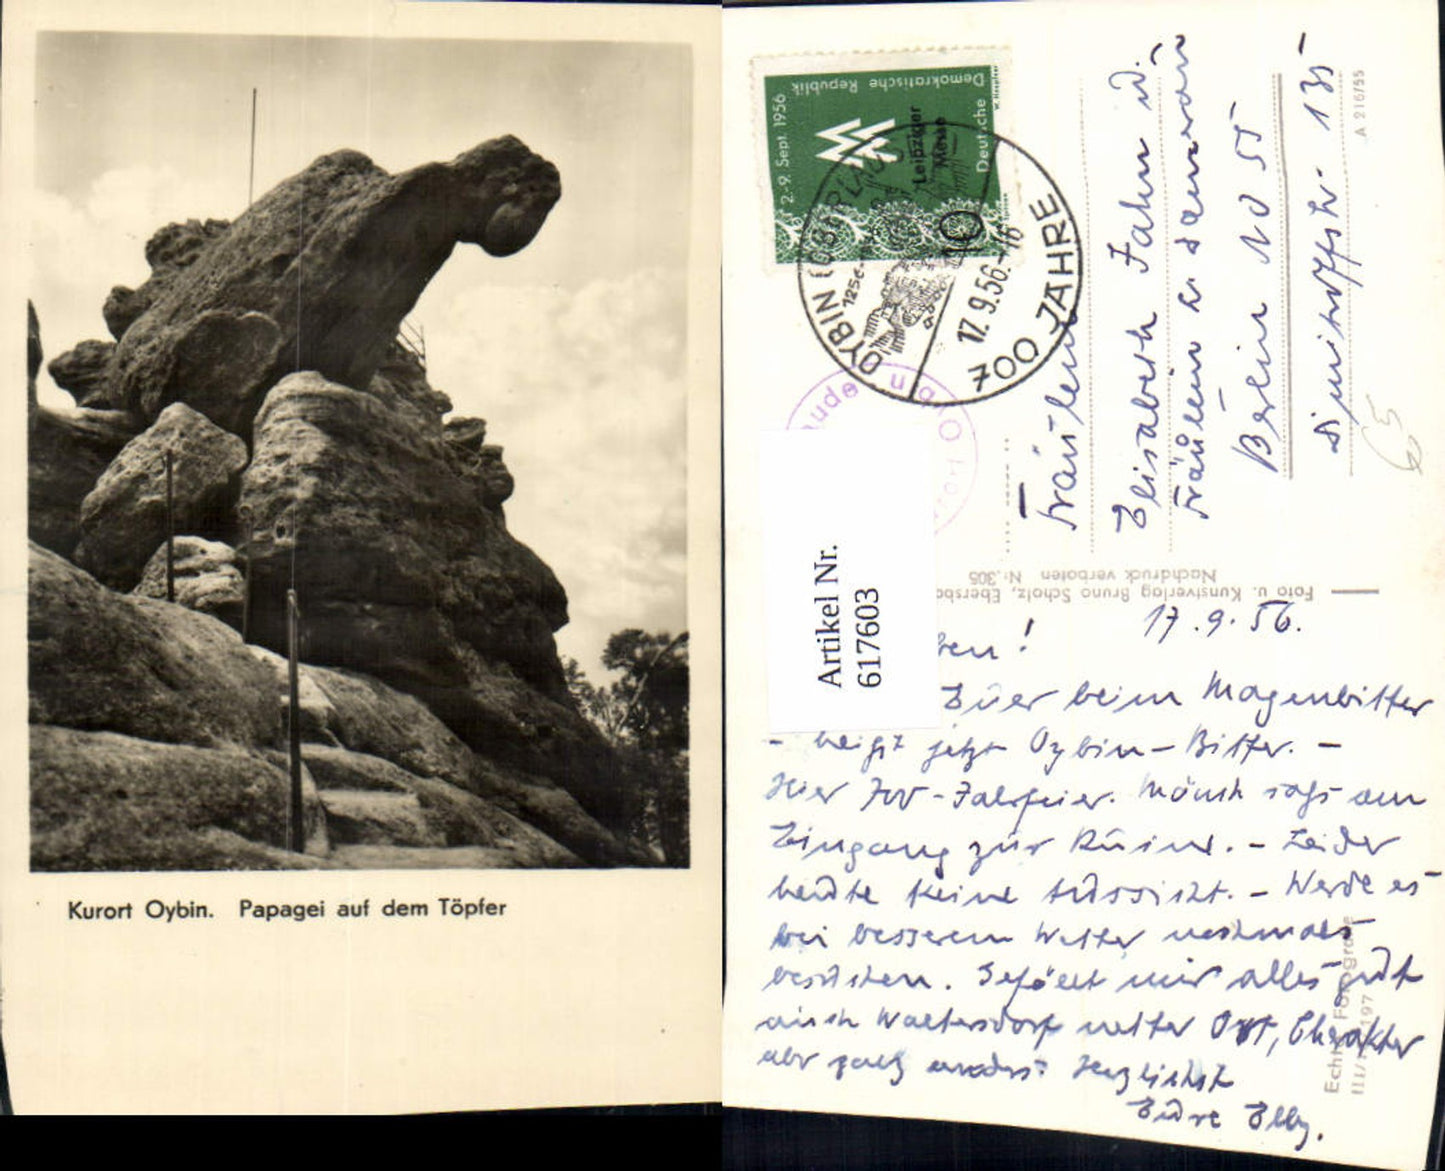 Kurort Oybin. Papagei auf dem Töpfer
Deutsche
Demokratische Republik
2.-9. Sept. 1956
Leipziger
Messe
10
OYBIN (OBERLAUS
17.9.56.-16
700 JAHRE
Oybin
Artikel Nr.
617603
Fräulein
Elisabeth Jahn u.
Fräulein
Berlin NO 55
Dimitroffstr. 135
A 216/55
65
Foto u. Kunstverlag Bruno Scholz, Ebersb
Nachdruck verboten Nr. 305
17.9.56.
ben!
Euer beim Magenbitter
- heißt jetzt Oybin-Bitter. -
Hier 700-Jahrfeier. Mönch saß am
Eingang zur Ruine. - Leider
heute keine Aussicht. - Werde es
bei besserem Wetter nochmals
besuchen. Gefällt mir alles gut
auch Waltersdorf netter Ort, Charakter
aber ganz anders. Herzlichst
Eure Elly.
Echt Fotografie
III/ 197